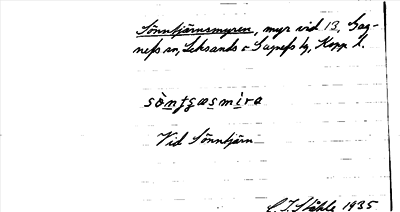 Sönntjärnsmyren, myr vid 13, Gag-
nefs sn, Leksands o Gagnefs tg, Kopp. l.
sò̀nʃʂæsmira
Vid Sönntjärn
C. I. Ståhle 1935